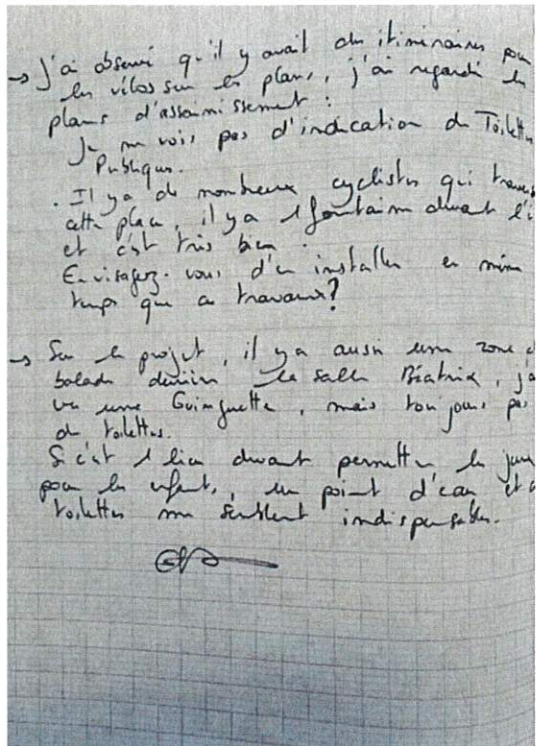 → J'ai observé qu'il y avait des itinéraires pour
les vélos sur les plans, j'ai regardé les
plans d'assainissement :
Je ne vois pas d'indication de Toilettes
Publiques.
. Il y a de nombreux cyclistes qui
cette place, il y a 1 fontaine devant
et c'est très bien.
Envisagez-vous d'en installer en même
temps que ces travaux?
→ Sur le projet, il y a aussi une zone
balade derrière la salle Béatrix, j'ai
vu une Guinguette, mais toujours pas
de toilettes.
Si c'est 1 lieu devant permettre le
pour les enfants, un point d'eau et
toilettes me semblent indispensables.